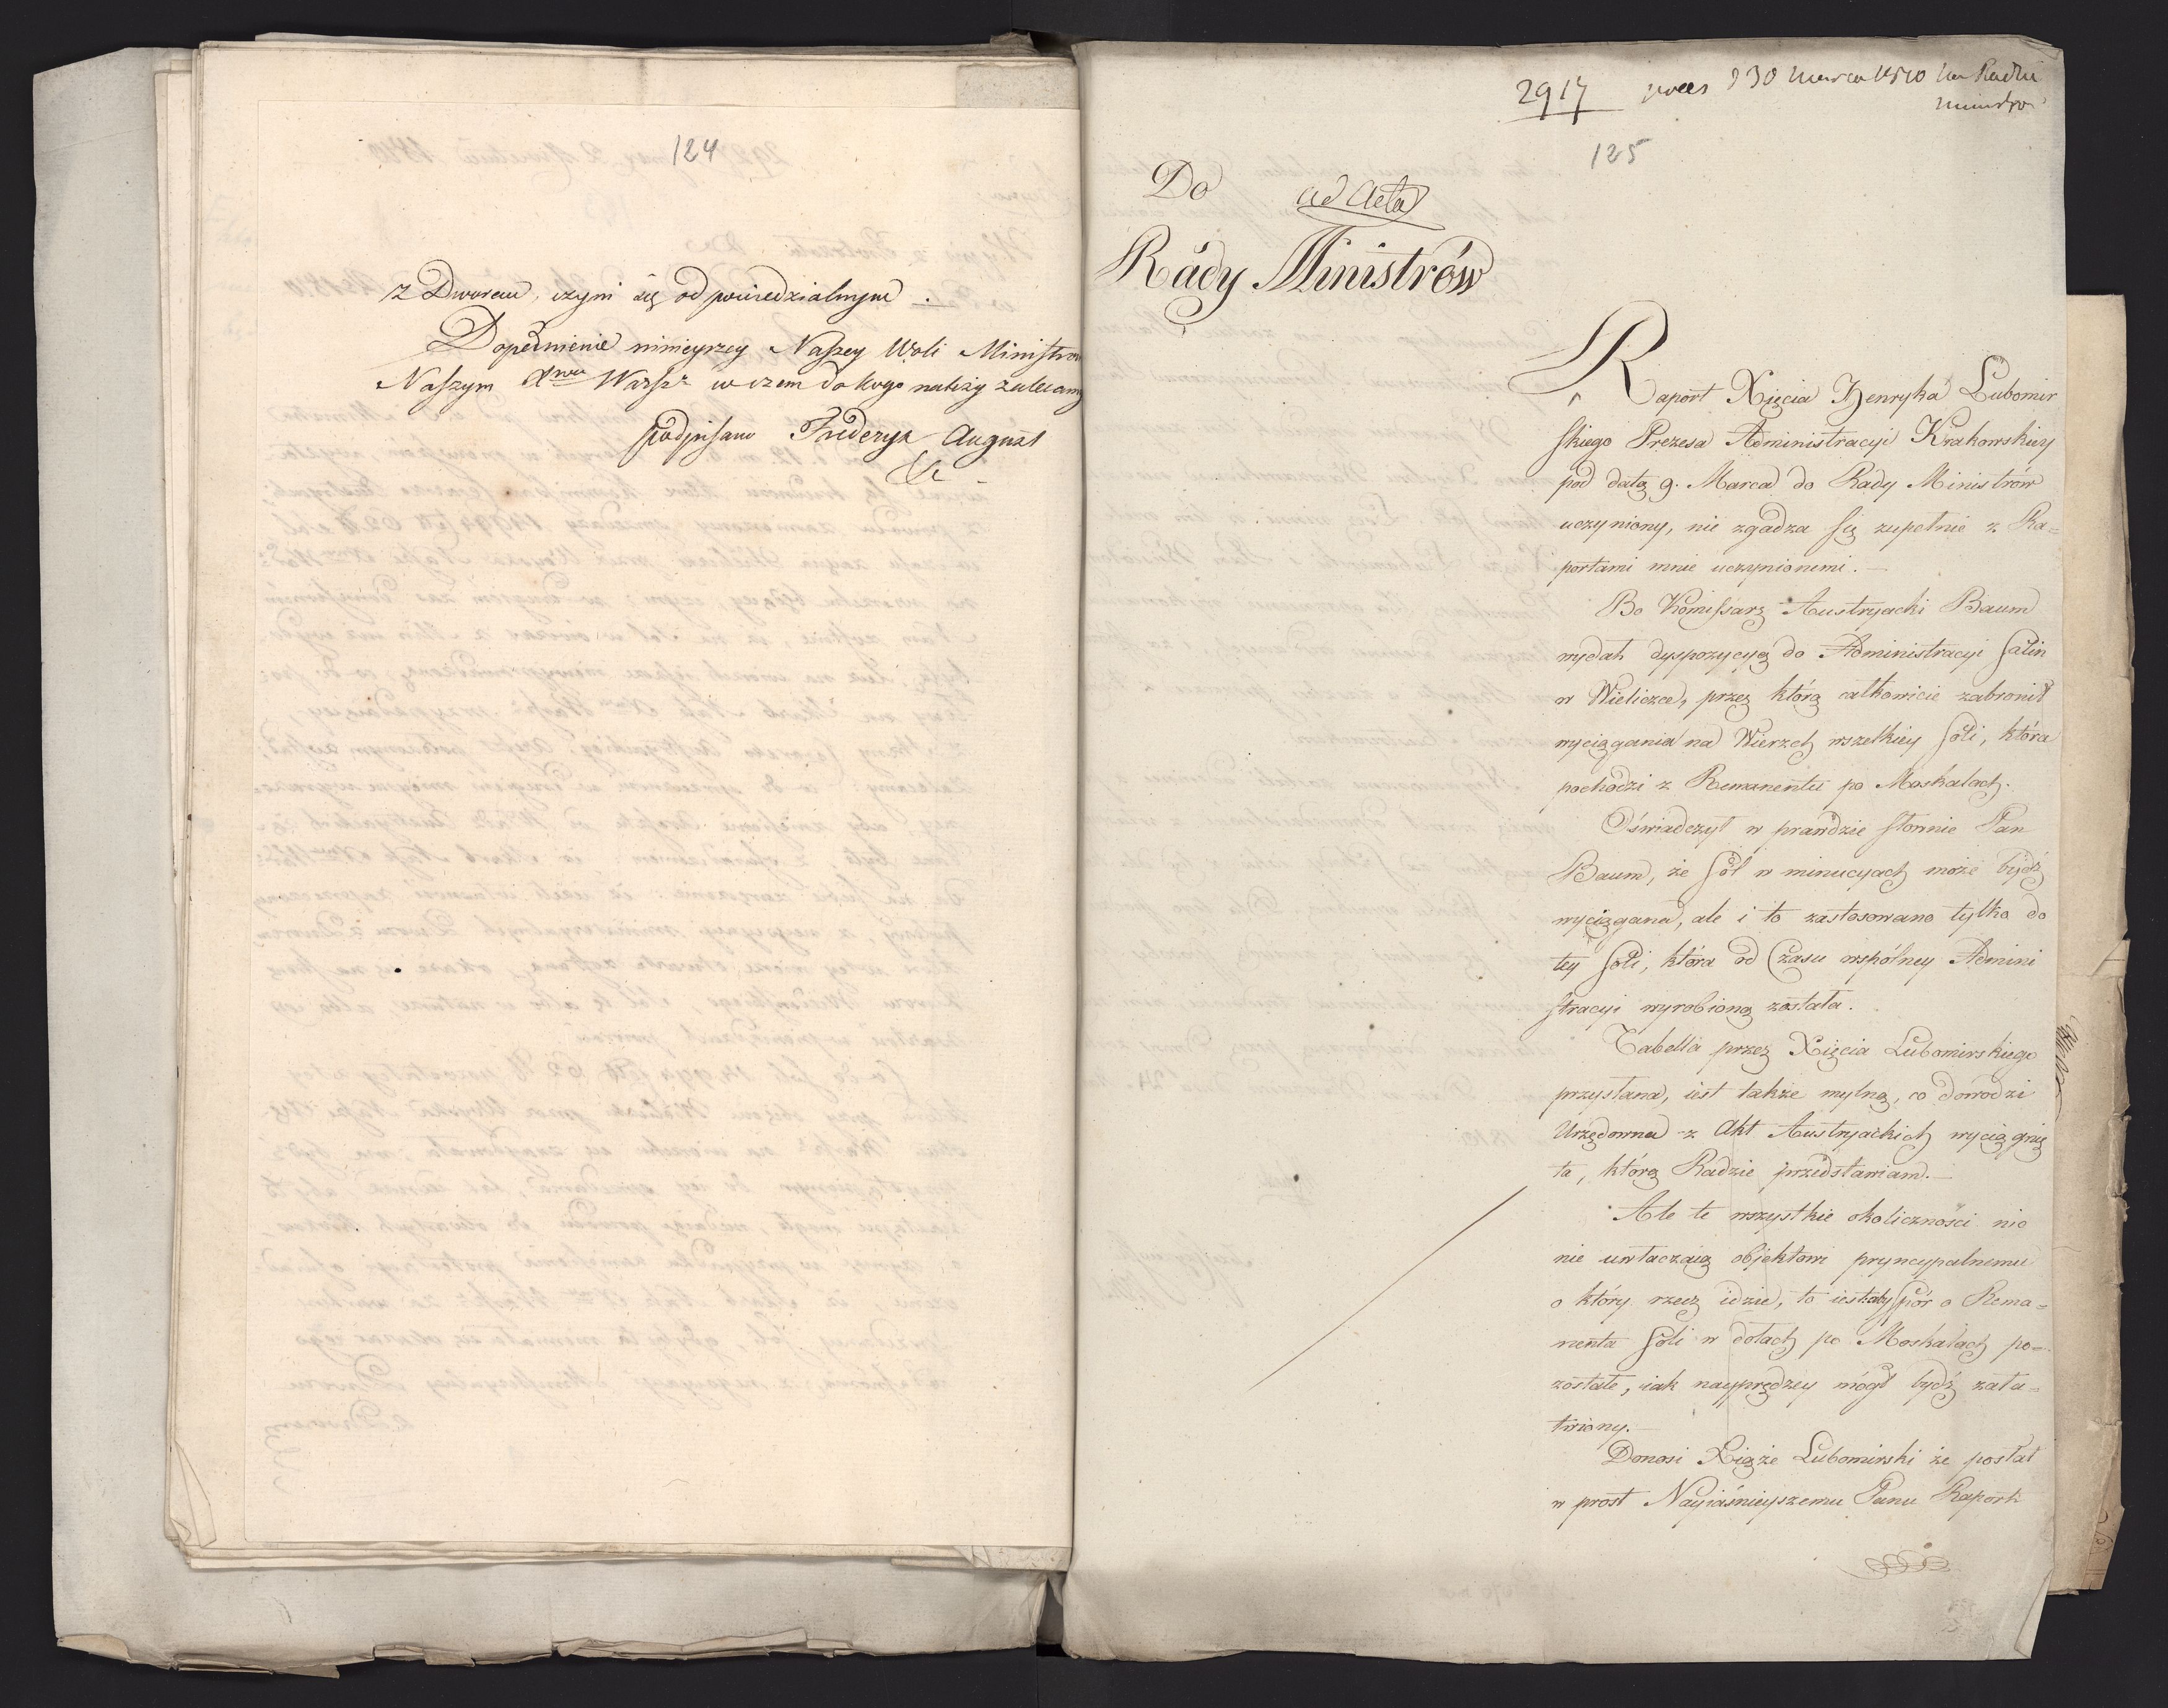 124
z Dworem, czyni się odpowiedzialnym.
Dopełnienie ninieyszey Naszey Woli Ministrom
Naszym Xtwa Warszo w czem do kogo należy zalecamy
podpisano Frideryk August
2917 prces d 30 marca 1810 na Radzie
ministrow
125
Do ad acta
Rády Ministrów
Raport Xięcia Henryka Lubomir
skiego Prezesa Administracyi Krakowskiey
pod datą 9. Marca do Rády Ministrów
uczyniony, nie zgadza się zupełnie z Ra=
portami mnie uczynionemi.—
Bo Komissarz Austryacki Baum
wydał dyspozycyą do Administracyi Salin
w Wieliczce, przez którą całkowicie zabronił
wyciągania na Wierzch wszelkiey soli, która
pochodzi z Remanentu po Moskalach.
Oświadczył w prawdzie słownie Pan
Baum, że sól w minucyach może bydź
wyciągana, ale i to zastosowano tylko do
tey soli, która od Czasu wspólney Admini
stracyi wyrobioną została.
Tabella przez Xięcia Lubomirskiego
przysłana, iest także mylną, co dowodzi
Urzędowna z Akt Austryackich wyciągnię
ta, którą Radzie przedstawiam.—
Ale te wszystkie okoliczności nic
nie uwłaczaią objektowi pryncypalnemu
o który rzecz idzie, to iest aby spór o Rema=
nenta soli w dołach po Moskalach po=
zostałe, iak nayprędzey mógł bydź zała=
twiony.—
Donosi Xiąże Lubomirski że posłał
w prost Nayiaśnieyszemu Panu Raport